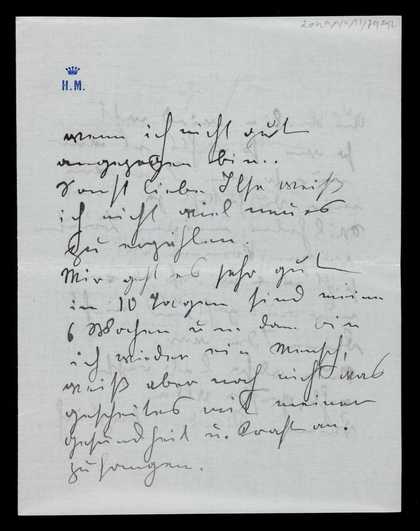 H.M.
wenn ich nicht gut
angezogen bin..
Sonst liebe Ilse weiß
ich nicht viel neues
zu erzählen.
Mir geht es sehr gut
in 10 Tagen sind meine
6 Wochen u. dann bin
ich wieder ein Mensch,
weiß aber noch nicht was
gescheites mit meiner
gesundheit u. Kraft an.
zufangen.